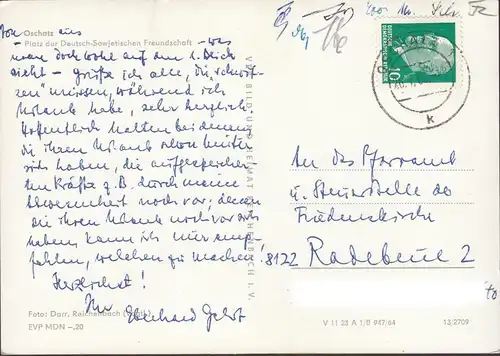 Oschatz
Von aus
Platz der Deutsch-Sowjetischen Freundschaft - was
man doch alle auf den 1. Blick
sieht - grüße ich alle, die „schwit-
zen" müssen, während ich
Urlaub habe, sehr herzlich.
Hoffentlich halten bei denen
die ihren Urlaub schon hinter
sich haben, die aufgespeicher-
ten Kräfte z.B. durch meine
Abwesenheit noch vor; denen
die ihren Urlaub noch vor sich
haben, kann ich nur emp-
fehlen, welchen zu machen!
Herzlichst!
Ihr Eberhard
Foto: Darr, Reichenbach
EVP MDN -,20
VERLAG BILD UND HEIMAT REICHENBACH I. V.
DEUTSCHE DEMOKRATISCHE REPUBLIK
10
k
An das Pfarramt
u. Steuerstelle der
Friedenskirche
8122 Radebeul 2
V 11 28 A 1/B 947/64
13/2709